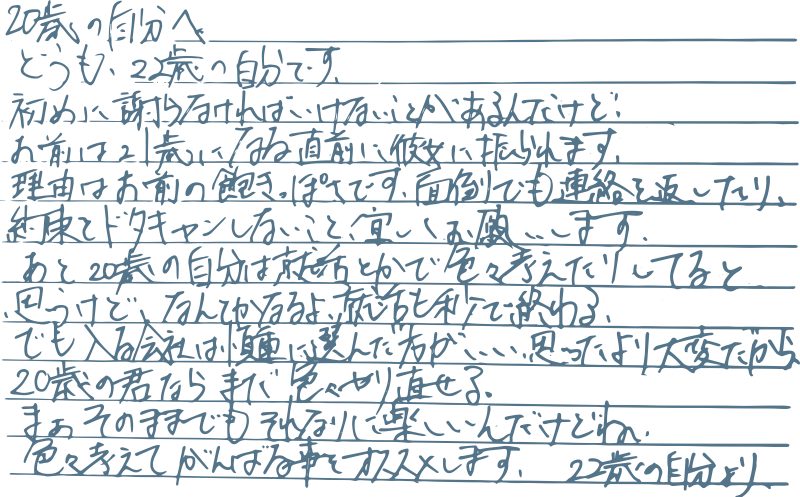 20歳の自分へ
どうも、22歳の自分です。
初めに謝らなければいけないことがあるんだけど、
お前は21歳になる直前に彼女に振られます。
理由はお前の飽きっぽさです。面倒でも連絡を返したり、
約束をドタキャンしないこと、宜しくお願いします。
あと20歳の自分は就活とかで色々考えたりしてると
思うけど、なんとかなるよ、就活も秒で終わる。
でも入る会社は慎重に選んだ方がいい、思ったより大変だから。
20歳の君ならまだ色々やり直せる。
まぁそのままでもそれなりに楽しいんだけどね。
色々考えてがんばる事をオススメします。 22歳の自分より。